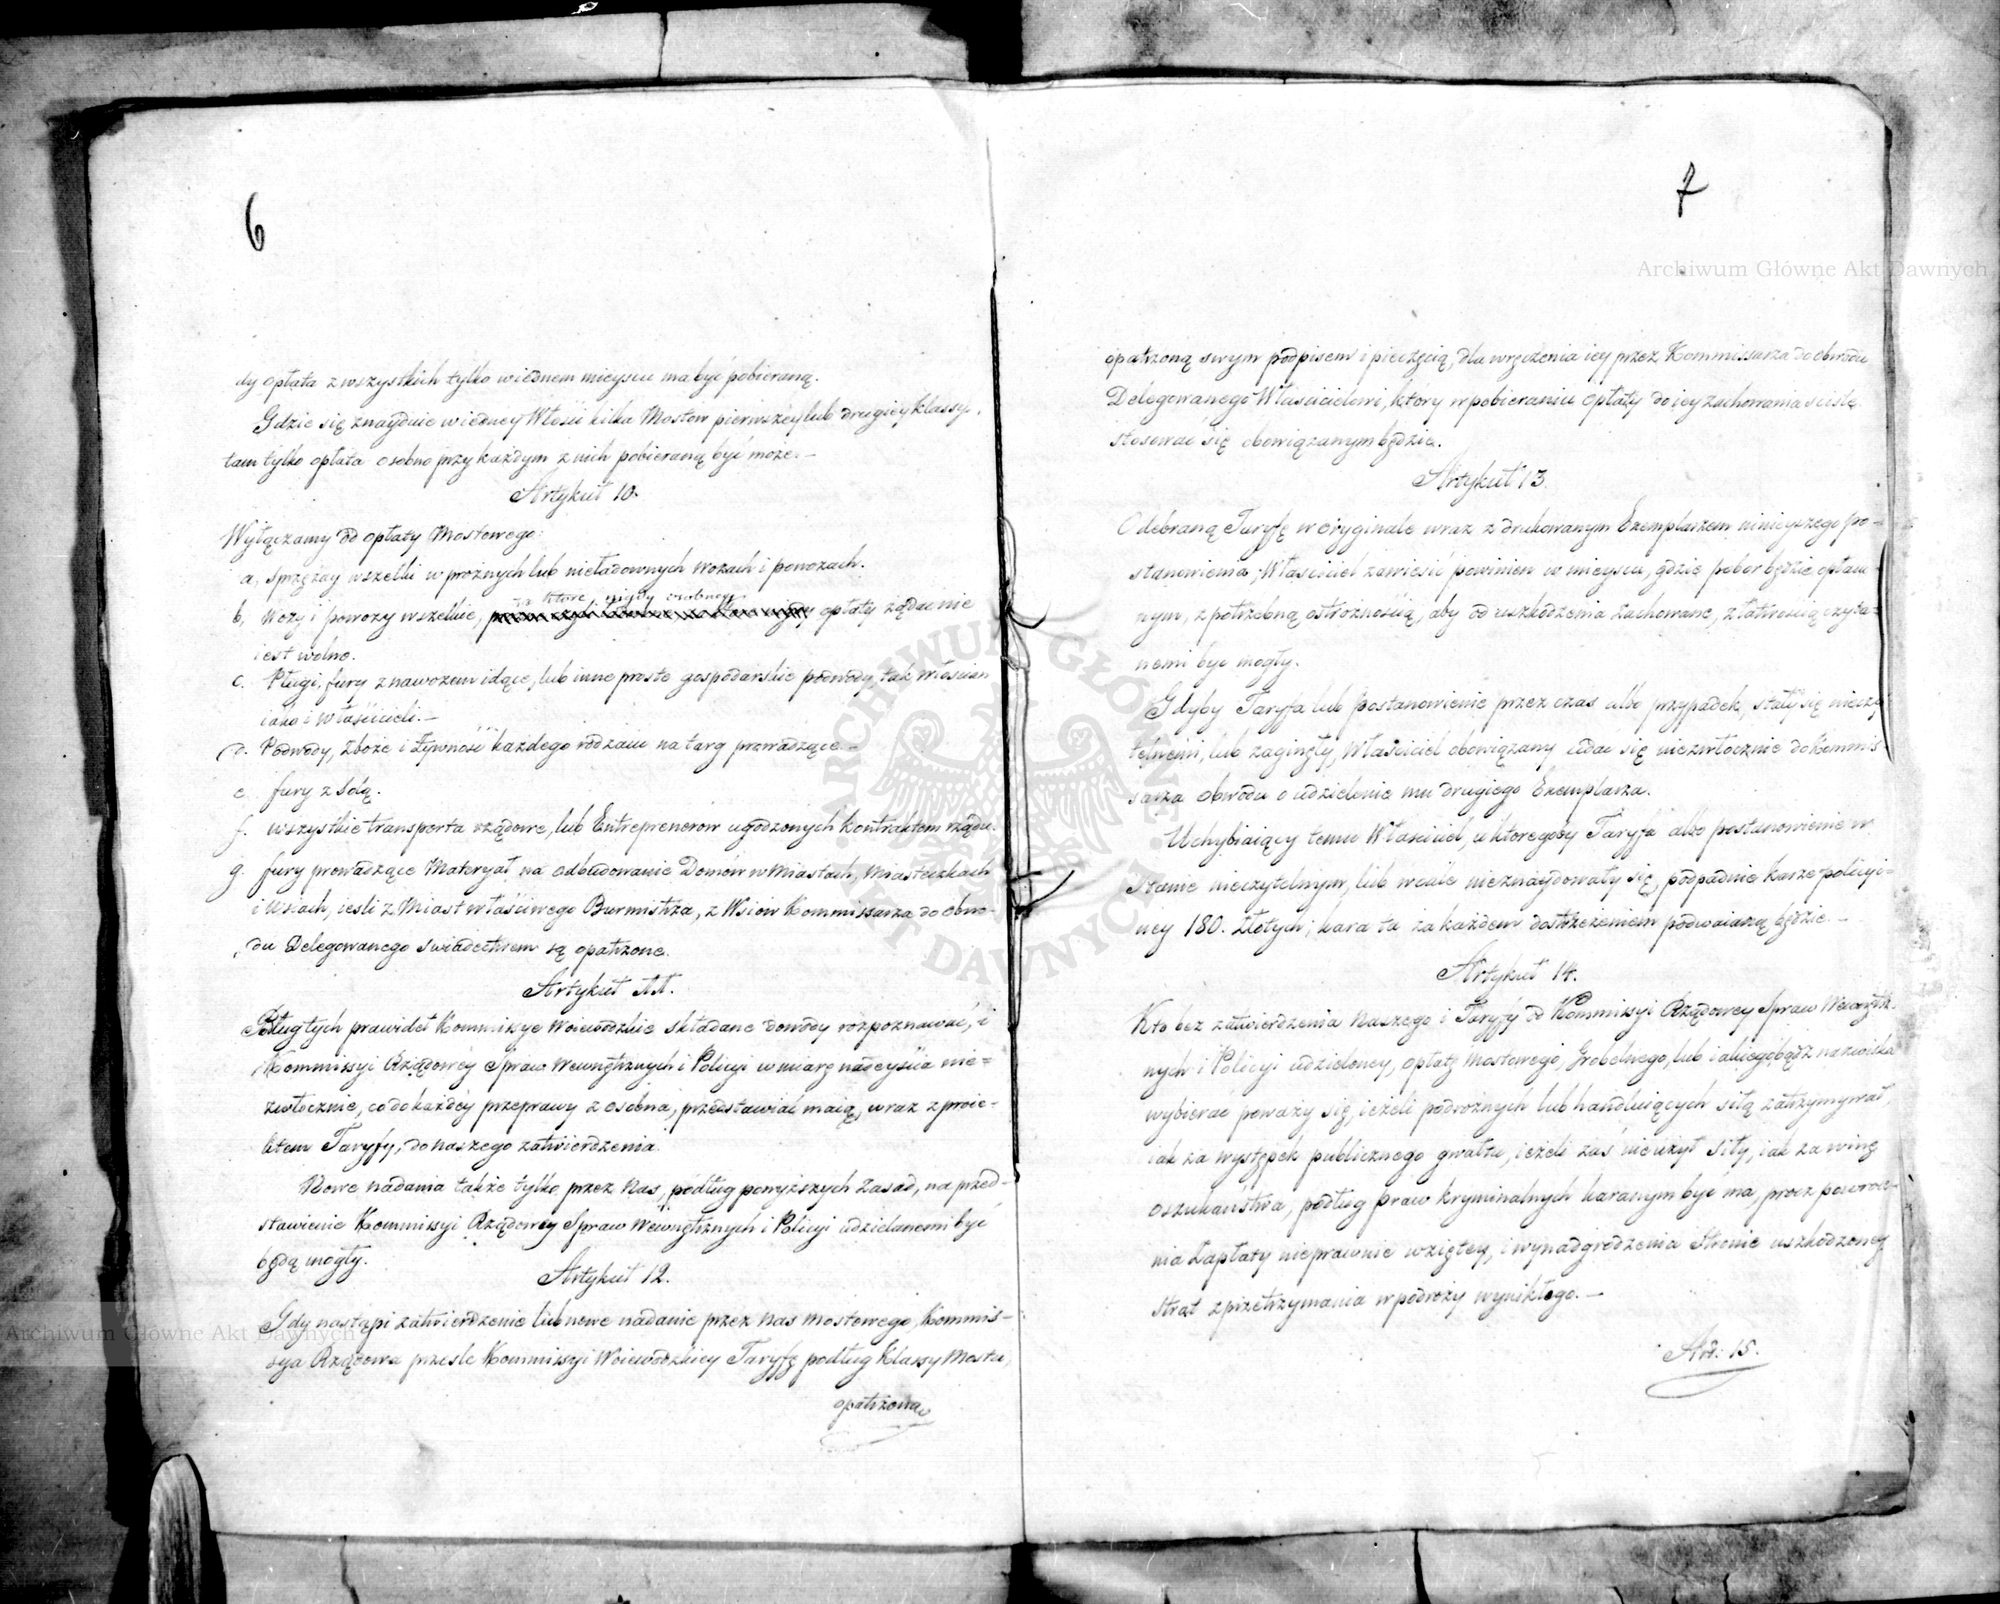 6
dy opłata z wszystkich tylko wiednem mieyscu ma być pobieraną.
Gdzie się znayduie wiedney Włości kilka Mostow pierwszey lub drugiey klassy,
tam tylko opłata osobno przy każdym z nich pobieraną być może. —
Artykuł 10.
Wyłączamy od opłaty Mostowego:
a, sprzężay wszelki w prożnych lub nieładownych wozach i powozach.
za ktore, nigdy osobney
b, Wozy i powozy wszelkie, opłaty żądać nie
iest wolno.
c. Pługi, fury z nawozem idące, lub inne proste gospodarskie podwody, tak włościan
iako i właścicieli. —
d. Podwody, zboże i żywność każdego rodzaiu na targ prowadzące —
e. fury z solą.
f. wszystkie transporta rządowe, lub Entreprenerow ugodzonych kontraktem rządu.
g. fury prowadzące Materyał na odbudowanie Domów w Miastach, Miasteczkach
i Wsiach, iesli z Miast właściwego Burmistrza, z Wsiow Kommissarza do obwo-
du Delegowanego swiadectwem są opatrzone.
Artykuł 11.
Podług tych prawideł Kommissye Woiewodzkie składane dowody rozpoznawać, i
Kommissyi Rządowéy Spraw Wewnętrznych i Policyi w miarę nadeyscia nie=
zwłocznie, co do każdéy przeprawy z osobna, przedstawiać maią, wraz z proie-
ktem Taryfy, do naszego zatwierdzenia.
Nowe nadania także tylko przez Nas, podług powyższych Zasad, na przed-
stawienie Kommissyi Rządowéy Spraw Wewnętrznych i Policyi udzielanemi być
będą mogły.
Artykuł 12.
Gdy nastąpi zatwierdzenie lub nowe nadanie przez Nas mostowego, Kommis-
sya Rządowa prześle Kommissyi Woiewodzkiey Taryfę podług Klassy Mostu,
opatrzoną
7
opatrzoną swym podpisem i pieczęcią, dla wręczenia iey przez Kommissarza do obwodu
Delegowanego Właścicielowi, ktory w pobieraniu opłaty do iey zachowania scisle
stosować się obowiązanym będzie.
Artykuł 13.
Odebraną Taryfę w oryginale wraz z drukowanym Exemplarzem ninieyszego po-
stanowienia, Właściciel zawiesić powinien w mieyscu, gdzie pobor będzie opłaca-
nym, z potrzebną ostrożnością, aby od uszkodzenia zachowane, z łatwością czyta=
nemi być mogły.
Gdyby Taryfa lub Postanowienie przez czas albo przypadek, stały się nieczy
telnemi, lub zaginęły, Właściciel obowiązany udać się niezwłocznie do Kommis-
sarza obwodu o udzielenie mu drugiego Exemplarza.
Uchybiaiący temu Właściciel, u ktoregoby Taryfa albo postanowienie w
stanie nieczytelnym, lub wcale nieznaydowały się, podpadnie karze policyi-
ney 180. Złotych; kara ta za każdem dostrzeżeniem podwaianą będzie. —
Artykuł 14.
Kto bez zatwierdzenia Naszego i Taryfy od Kommissyi Rządowey Spraw Wewnętrz-
nych i Policyi udzieloney, opłatę mostowego, Grobelnego, lub iakiegobądź nazwiska
wybierać poważy się, ieżeli podrożnych lub handluiących siłą zatrzymywał,
iak za występek publicznego gwałtu, ieżeli zaś nieużył siły, iak za winę
oszukaństwa, podług praw kryminalnych karanym być ma, procz powroce-
nia Zapłaty nieprawnie wziętey, i wynadgrodzenia Stronie uszkodzoney
strat z przetrzymania w podroży wynikłego. —
Art: 15.
Archiwum Główne Akt Dawnych
Archiwum Główne Akt Dawnych
ARCHIWUM GŁÓWNE AKT DAWNYCH